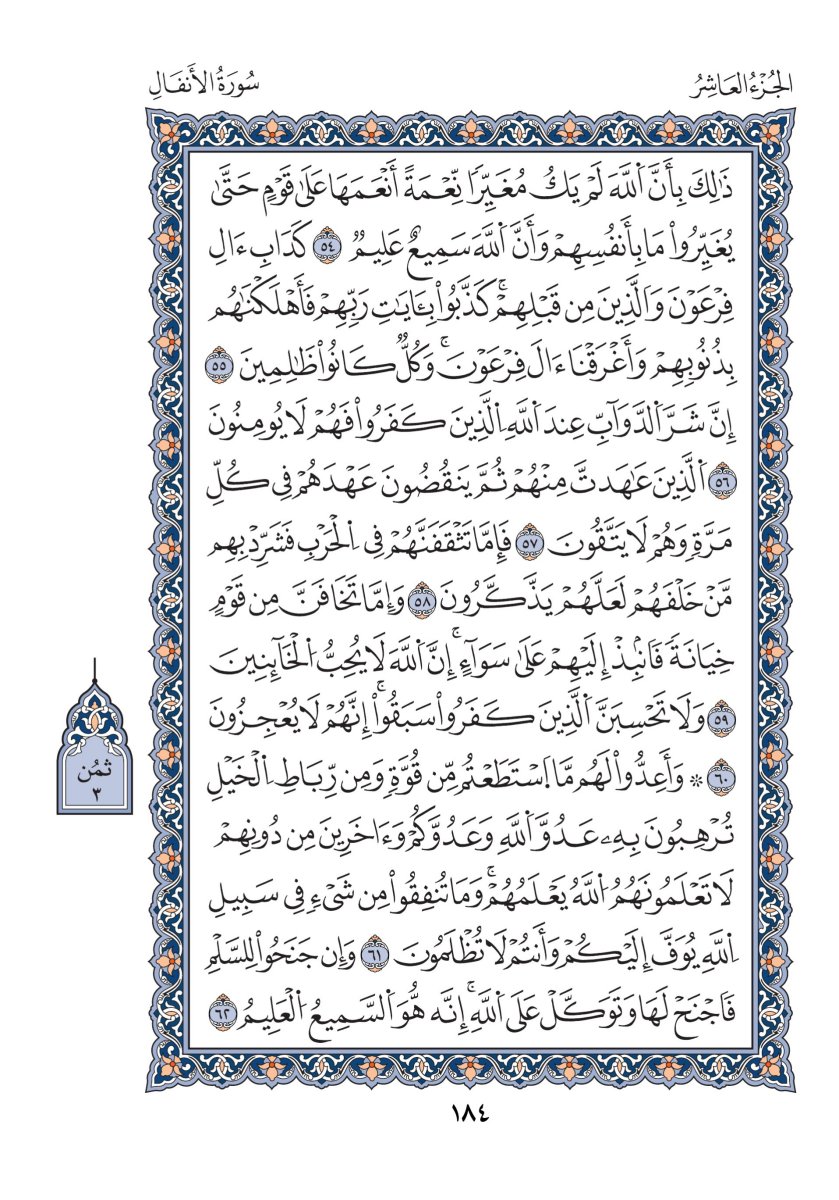 الجُزْءُ العَاشِرُ
سُورَةُ الأَنفَالِ
ذَٰلِكَ بِأَنَّ اَ۬للَّهَ لَمْ يَكُ مُغَيِّراٗ نِّعْمَةً أَنْعَمَهَا عَلَىٰ قَوْمٍ حَتَّىٰ
يُغَيِّرُواْ مَا بِأَنفُسِهِمْ وَأَنَّ اَ۬للَّهَ سَمِيعٌ عَلِيمٞ ٥٤ كَدَابِ ءَالِ
فِرْعَوْنَ وَالَّذِينَ مِن قَبْلِهِمْۚ كَذَّبُواْ بِـَٔايَٰتِ رَبِّهِمْ فَأَهْلَكْنَٰهُم
بِذُنُوبِهِمْ وَأَغْرَقْنَا ءَالَ فِرْعَوْنَۚ وَكُلّٞ كَانُواْ ظَٰلِمِينَ ٥٥
إِنَّ شَرَّ اَ۬لدَّوَآبِّ عِندَ اَ۬للَّهِ اِ۬لَّذِينَ كَفَرُواْ فَهُمْ لَا يُومِنُونَ
٥٦ اَ۬لَّذِينَ عَٰهَدتَّ مِنْهُمْ ثُمَّ يَنقُضُونَ عَهْدَهُمْ فِي كُلِّ
مَرَّةٖ وَهُمْ لَا يَتَّقُونَ ٥٧ فَإِمَّا تَثْقَفَنَّهُمْ فِي اِ۬لْحَرْبِ فَشَرِّدْ بِهِم
مَّنْ خَلْفَهُمْ لَعَلَّهُمْ يَذَّكَّرُونَ ٥٨ وَإِمَّا تَخَافَنَّ مِن قَوْمٍ
خِيَانَةٗ فَانۢبِذْ إِلَيْهِمْ عَلَىٰ سَوَآءٍۚ اِنَّ اَ۬للَّهَ لَا يُحِبُّ اُ۬لْخَآئِنِينَ
٥٩ وَلَا تَحْسِبَنَّ اَ۬لَّذِينَ كَفَرُواْ سَبَقُواْۚ إِنَّهُمْ لَا يُعْجِزُونَ
٦٠ ۞ وَأَعِدُّواْ لَهُم مَّا اَ۪سْتَطَعْتُم مِّن قُوَّةٖ وَمِن رِّبَاطِ اِ۬لْخَيْلِ
تُرْهِبُونَ بِهِۦ عَدُوَّ اَ۬للَّهِ وَعَدُوَّكُمْ وَءَاخَرِينَ مِن دُونِهِمْ
لَا تَعْلَمُونَهُمُ اُ۬للَّهُ يَعْلَمُهُمْۚ وَمَا تُنفِقُواْ مِن شَيْءٖ فِي سَبِيلِ
اِ۬للَّهِ يُوَفَّ إِلَيْكُمْ وَأَنتُمْ لَا تُظْلَمُونَ ٦١ وَإِن جَنَحُواْ لِلسَّلْمِ
فَاجْنَحْ لَهَا وَتَوَكَّلْ عَلَى اَ۬للَّهِۚ إِنَّه هُّوَ اَ۬لسَّمِيعُ اُ۬لْعَلِيمُ ٦٢
ثمُن
٣
١٨٤